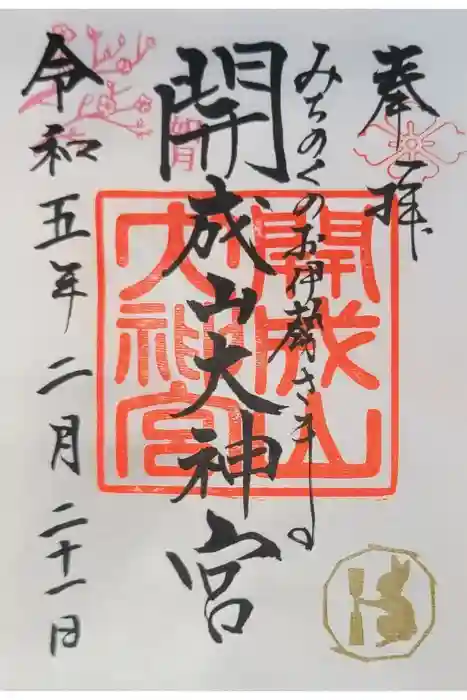 奉拝
みちのくのお伊勢さま
開成山大神宮
令和五年二月二十一日
如月
開成山大神宮